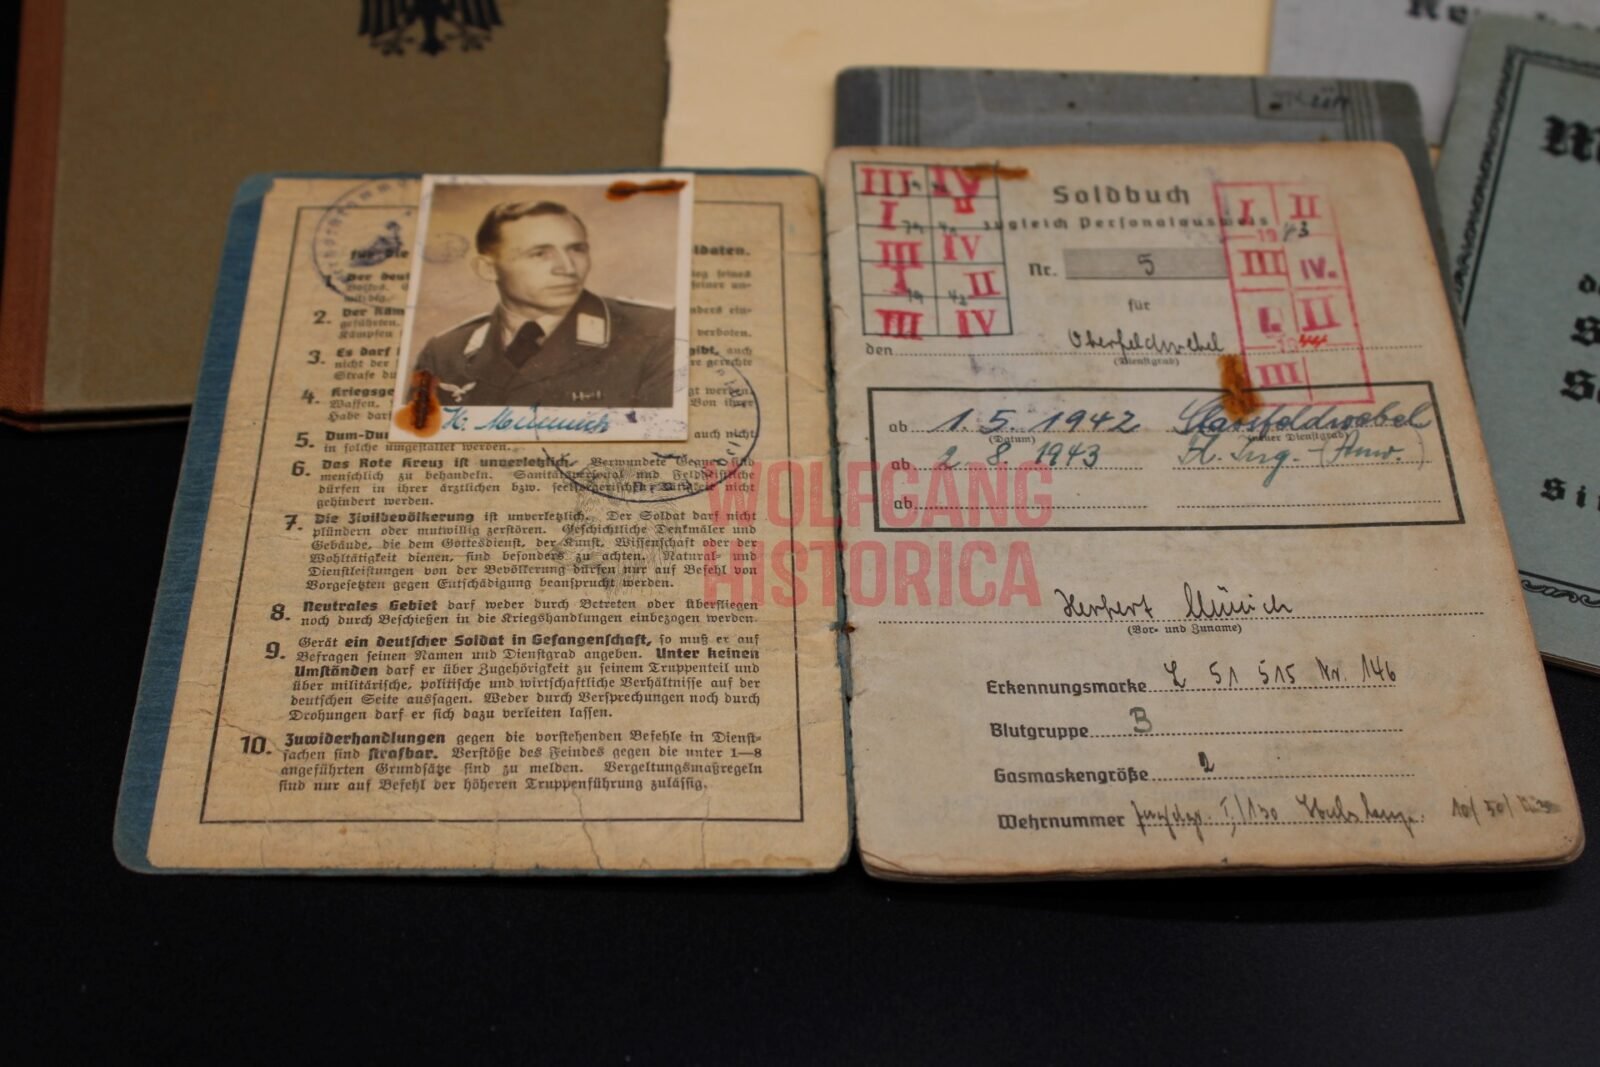 für die
ldaten.
1. Der deut
ieg seines
seiner un-
2. Der Käm
nders ein-
geführten.
Kämpfen
verboten.
3. Es darf
gibt, auch
nicht der
re gerechte
Strafe du
4. Kriegsge
gt werden.
Waffen,
Von ihrer
Habe darf
5. Dum-Du
auch nicht
in solche umgestaltet werden.
6. Das Rote Kreuz ist unverletzlich. Verwundete Gegner sind
menschlich zu behandeln. Sanitätspersonal und Feldgeistliche
dürfen in ihrer ärztlichen bzw. seelsorgerischen Tätigkeit nicht
gehindert werden.
7. Die Zivilbevölkerung ist unverletzlich. Der Soldat darf nicht
plündern oder mutwillig zerstören. Geschichtliche Denkmäler und
Gebäude, die dem Gottesdienst, der Kunst, Wissenschaft oder der
Wohltätigkeit dienen, sind besonders zu achten. Natural- und
Dienstleistungen von der Bevölkerung dürfen nur auf Befehl von
Vorgesetzten gegen Entschädigung beansprucht werden.
8. Neutrales Gebiet darf weder durch Betreten oder Überfliegen
noch durch Beschießen in die Kriegshandlungen einbezogen werden.
9. Gerät ein deutscher Soldat in Gefangenschaft, so muß er auf
Befragen seinen Namen und Dienstgrad angeben. Unter keinen
Umständen darf er über Zugehörigkeit zu seinem Truppenteil und
über militärische, politische und wirtschaftliche Verhältnisse auf der
deutschen Seite aussagen. Weder durch Versprechungen noch durch
Drohungen darf er sich dazu verleiten lassen.
10. Zuwiderhandlungen gegen die vorstehenden Befehle in Dienst-
sachen sind strafbar. Verstöße des Feindes gegen die unter 1—8
angeführten Grundsätze sind zu melden. Vergeltungsmaßregeln
sind nur auf Befehl der höheren Truppenführung zulässig.
H. Münnich
III IV
I
III IV
I II
III IV
Soldbuch
zugleich Personalausweis
Nr. 5
für
den Oberfeldwebel
(Dienstgrad)
I II
1943
III IV.
I. II
1944
III
ab 1.5.1942 Stabsfeldwebel
(Datum) (neuer Dienstgrad)
ab 2.8.1943 Fl. Ing.-(Anw.)
ab
Herbert Münich
(Vor- und Zuname)
Erkennungsmarke L 51 515 Nr. 146
Blutgruppe B
Gasmaskengröße 2
Wehrnummer
WOLFGANG
HISTORICA